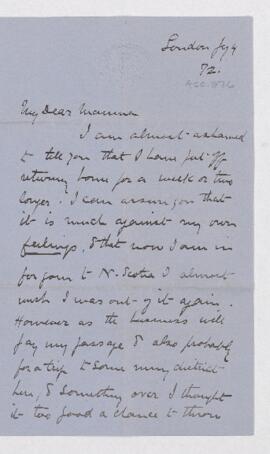 London Jy 4
72.
ASC.876
My Dear Mamma
I am almost ashamed
to tell you that I have put off
returning home for a week or two
longer. I can assure you that
it is much against my own
feelings, & that now I am in
for going to N. Scotia I almost
wish I was out of it again.
However as the business will
pay my passage & also probably
for a trip to some mining district
here, & something over I thought
it too good a chance to throw